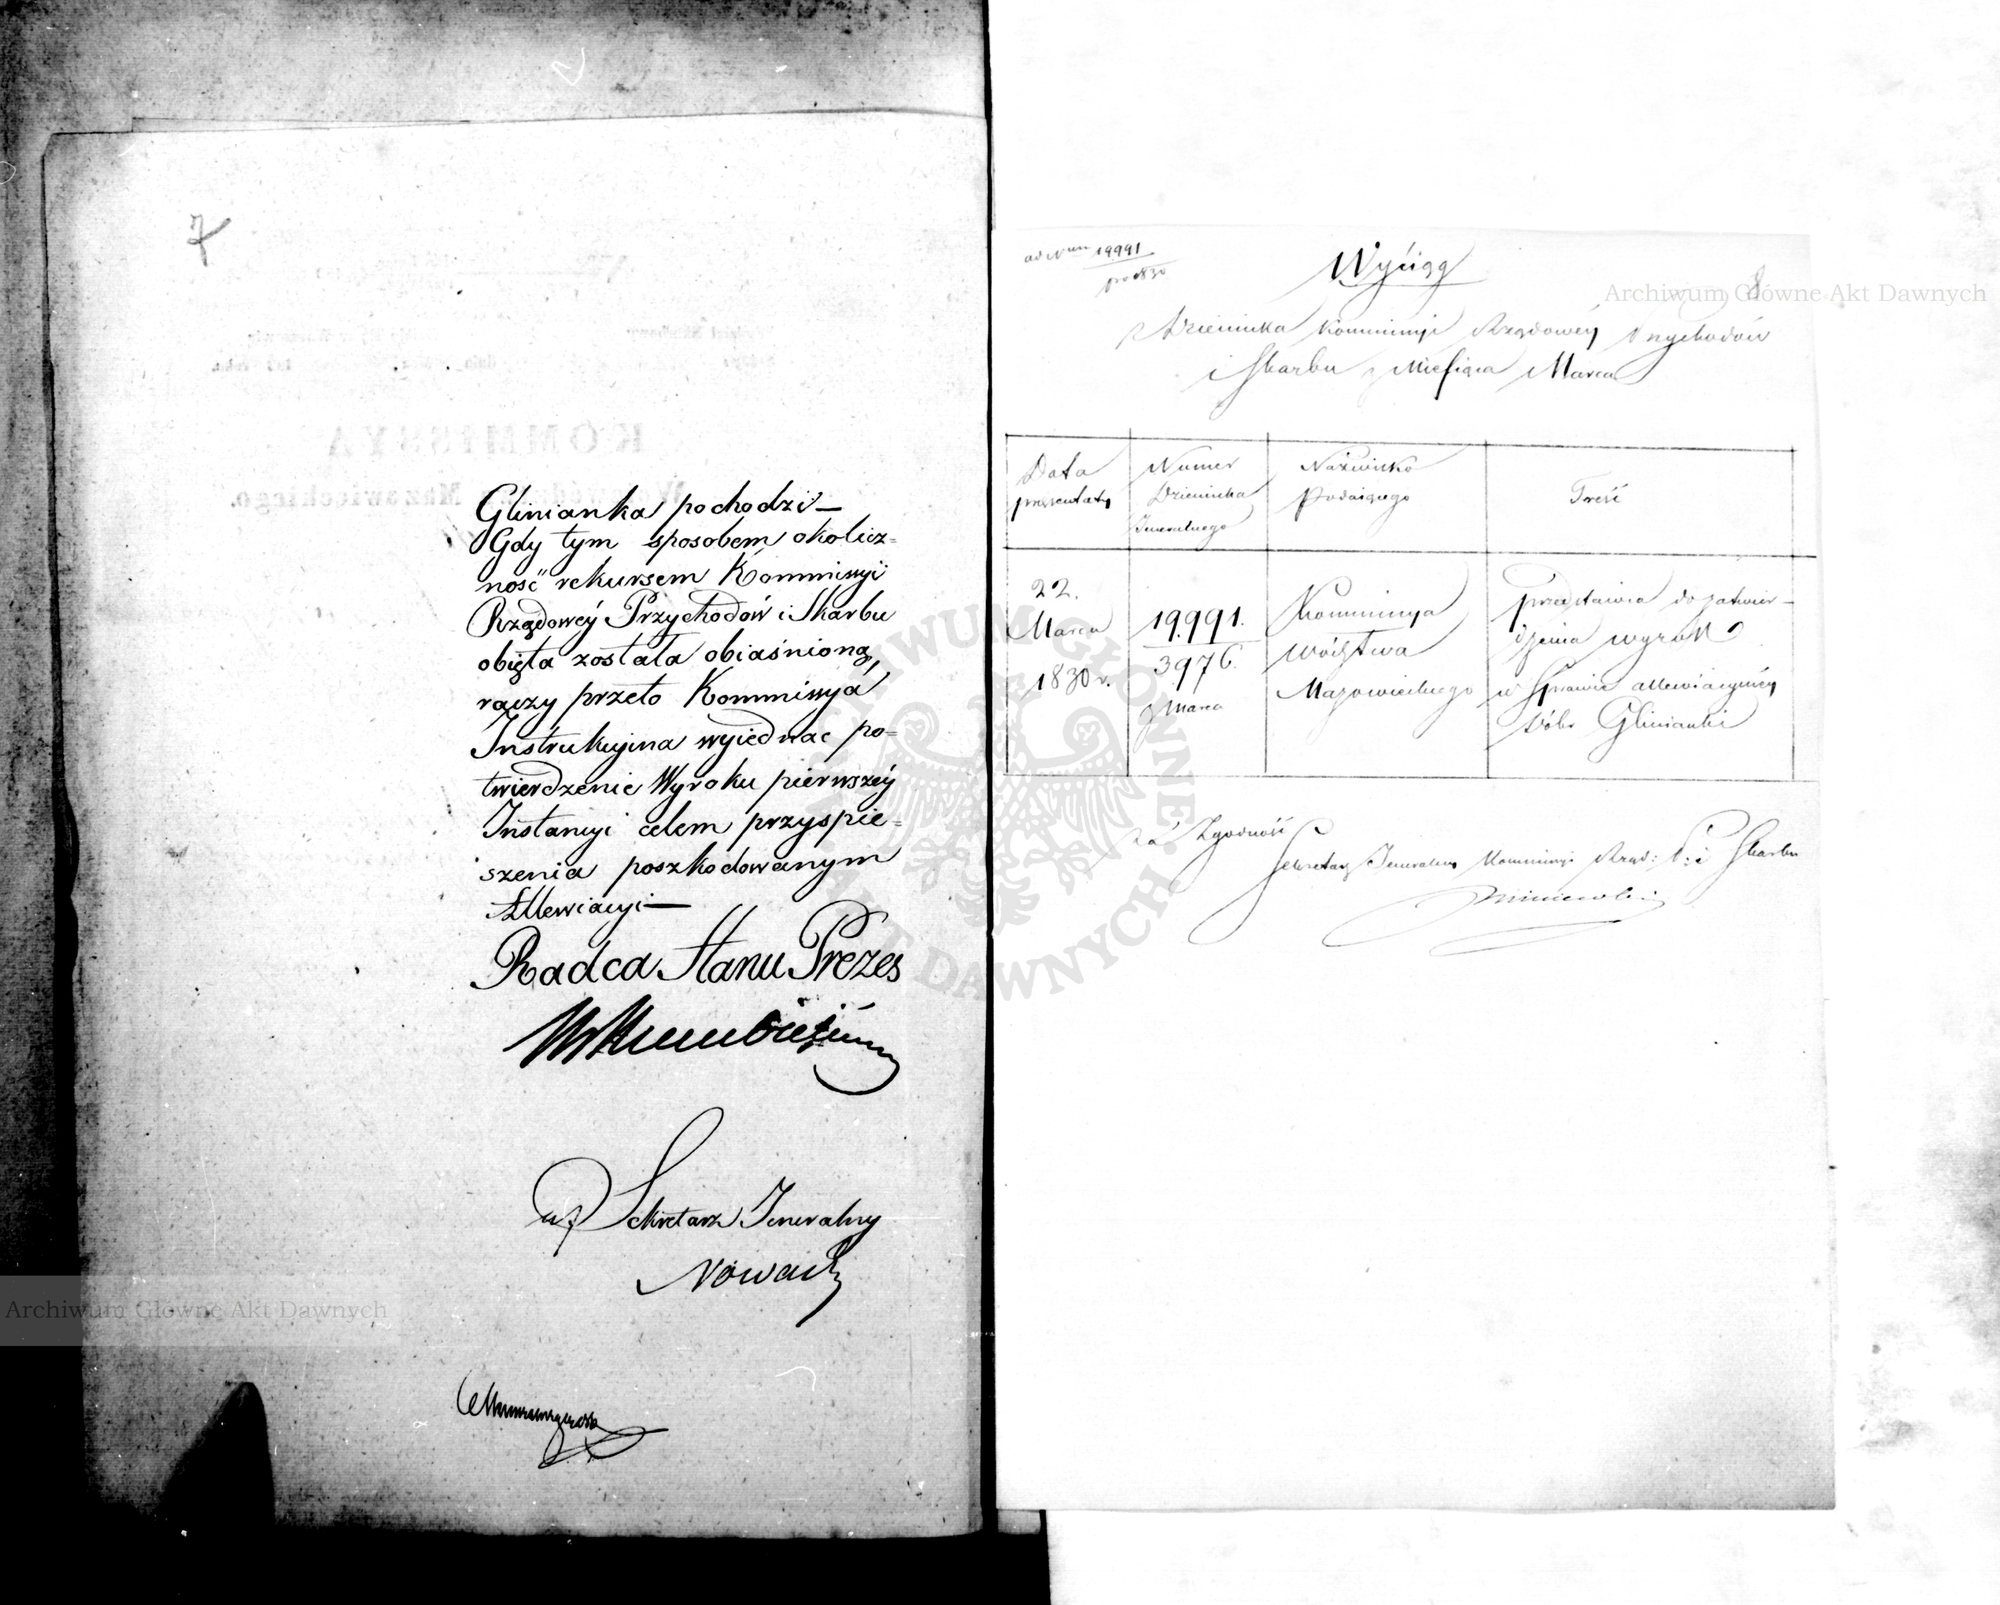 7
Glinianka pochodzi —
Gdy tym sposobem okolicz=
ność rekursem Kommissyi
Rządowéy Przychodów i Skarbu
obięta została obiaśnioną,
raczy przeto Kommissya
Instrukcyina wyiednać po=
twierdzenie Wyroku pierwszéy
Instancyi celem przyspie=
szenia poszkodowanym
Allewiacyi —
Radca Stanu Prezes
Sekretarz Jeneralny
Nowack
19991
pro 1830
8
Wyciąg
Dziennika Kommissyi Rządowéy Przychodów
i Skarbu z Miesiąca Marca
Data prezentaty
Numer Dziennika Jeneralnego
Nazwisko Podaiącego
Treść
22. Marca 1830 r.
19,991. 3976. z Marca
Kommissya Wództwa Mazowieckiego
przedstawia do zatwier-
dzenia wyrok
w Sprawie allewiacyinéy
dóbr Glinianki
Za Zgodność
Sekretarz Jeneralny Kommissyi Rząd: P: i Skarbu
KOMMISSYA
Mazowieckiego.
Archiwum Główne Akt Dawnych
Archiwum Główne Akt Dawnych
ARCHIWUM GŁÓWNE AKT DAWNYCH